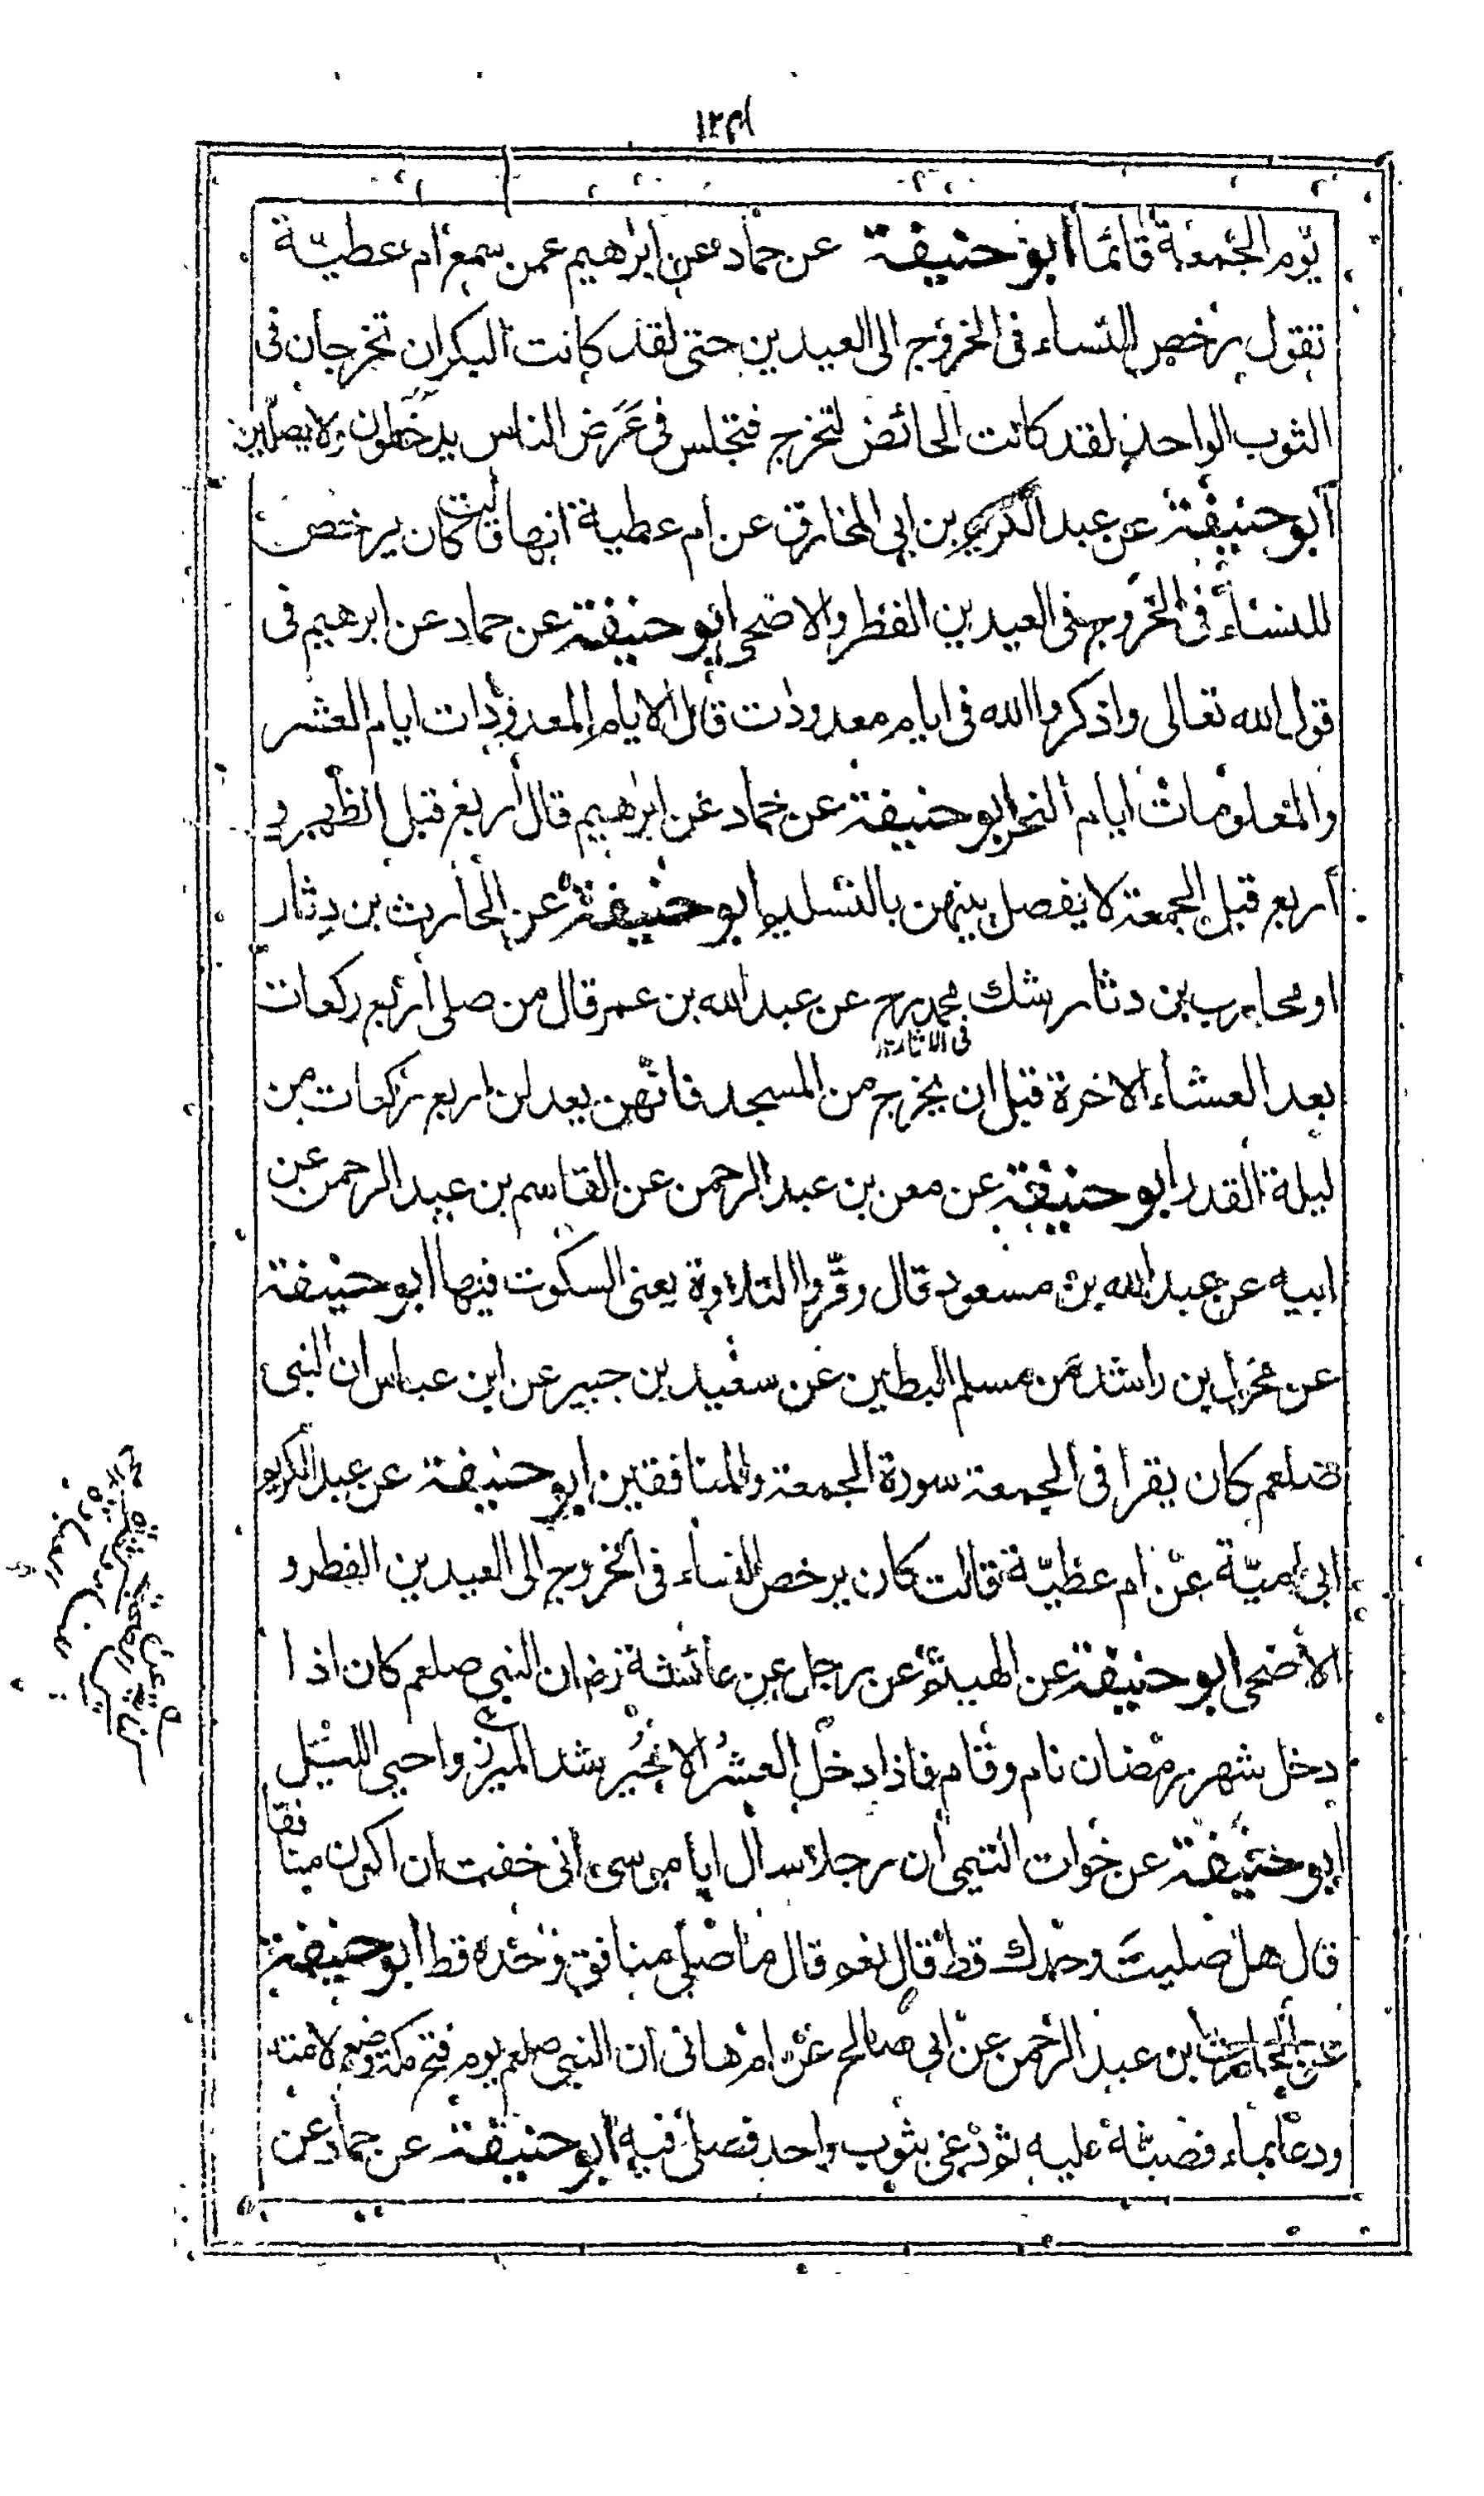 يوم الجمعة قائما ابو حنيفة عن حماد عن ابراهيم عمن سمع ام عطية
تقول يرخص للنساء فى الخروج الى العيدين حتى لقد كانت البكران تخرجان فى
الثوب الواحد لقد كانت الحائض لتخرج فتجلس فى عرض الناس يدخلون ولا يصلين
ابو حنيفة عن عبد الكريم بن ابى المخارق عن ام عطية انها قالت كان يرخص
للنساء فى الخروج فى العيدين الفطر والاضحى ابو حنيفة عن حماد عن ابرهيم فى
قول الله تعالى واذكروا الله فى ايام معدودات قال الايام المعدودات ايام العشر
والمعلومات ايام النحر ابو حنيفة عن حماد عن ابراهيم قال اربع قبل الظهر و
أربع قبل الجمعة لا يفصل بينهن بالتسليم ابو حنيفة عن الحارث بن دثار
او محارب بن دثار شك محمد رح عن عبد الله بن عمر قال من صلى اربع ركعات
فى الاثار
بعد العشاء الاخرة قبل ان يخرج من المسجد فانهن يعدلن اربع ركعات من
ليلة القدر ابو حنيفة عن معن بن عبد الرحمن عن القاسم بن عبد الرحمن عن
ابيه عن عبد الله بن مسعود قال وقروا التلاوة يعنى السكوت فيها ابو حنيفة
عن مخول بن راشد عن مسلم البطين عن سعيد بن جبير عن ابن عباس ان النبى
صلعم كان يقرا فى الجمعة سورة الجمعة والمنافقين ابو حنيفة عن عبد الكريم
ابى امية عن ام عطية قالت كان يرخص للنساء فى الخروج الى العيدين الفطر و
الاضحى ابو حنيفة عن الهيثم عن رجل عن عائشة رض ان النبى صلعم كان اذا
دخل شهر رمضان نام وقام فاذا دخل العشر الاخير شد الميزر واحيى الليل
ابو حنيفة عن خوات التيمى ان رجلا سال ابا موسى انى خفت ان اكون منافقا
قال هل صليت وحدك قط قال نعم قال ما صلى منافق وحده قط ابو حنيفة
عن الحارث بن عبد الرحمن عن ابى صالح عن ام هانى ان النبى صلعم يوم فتح مكة وضع لامته
ودعا بماء فصبه عليه ثم دعى بثوب واحد فصلى فيه ابو حنيفة عن حماد عن